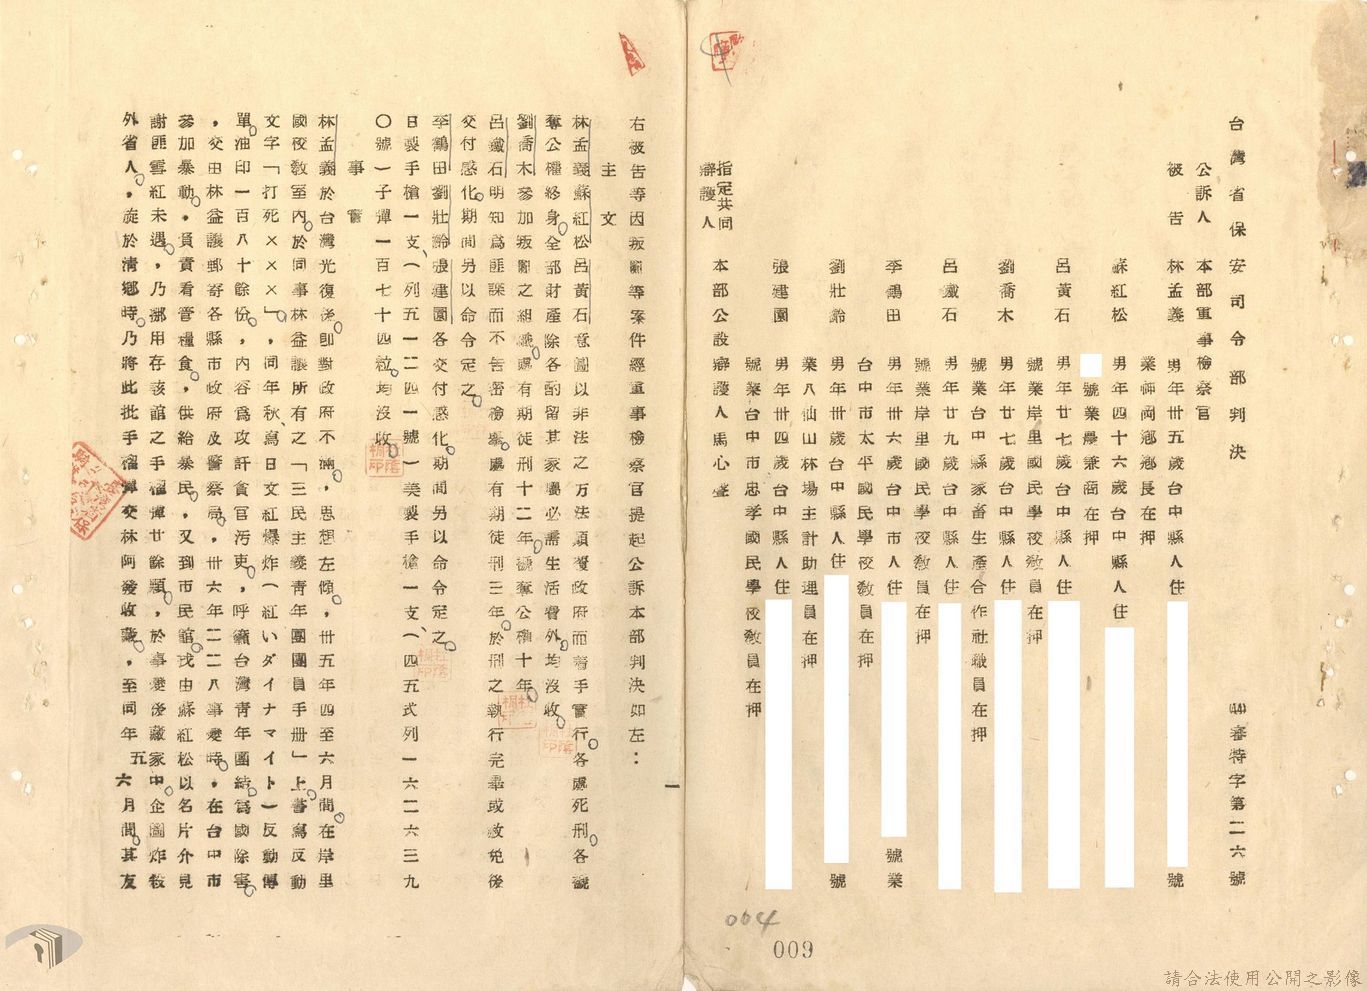 台灣省保安司令部判決 (41)審特字第二六號
公訴人 本部軍事檢察官
被告 林孟義 男年卅五歲台中縣人住 號
業神岡鄉鄉長在押
蘇紅松 男年四十六歲台中縣人住
號業農兼商在押
呂黃石 男年廿七歲台中縣人住
號業岸里國民學校教員在押
劉喬木 男年廿七歲台中縣人住
號業台中縣家畜生產合作社職員在押
呂鐵石 男年廿九歲台中縣人住
號業岸里國民學校教員在押
李鶴田 男年卅六歲台中市人住 號業
台中市太平國民學校教員在押
劉壯鈴 男年卅歲台中縣人住 號
業八仙山林場主計助理員在押
張建園 男年卅四歲台中縣人住
號業台中市忠孝國民學校教員在押
指定共同辯護人 本部公設辯護人馬心
右被告等因叛亂等案件經軍事檢察官提起公訴本部判決如左：
主文
林孟義蘇紅松呂黃石意圖以非法之方法顛覆政府而着手實行各處死刑各褫
奪公權終身全部財產除各酌留其家屬必需生活費外均沒收
劉喬木參加叛亂之組織處有期徒刑十二年褫奪公權十年
呂鐵石明知為匪諜而不告密檢舉處有期徒刑三年於刑之執行完畢或赦免後
交付感化期間另以命令定之
李鶴田劉壯鈴張建園各交付感化期間另以命令定之
日製手槍一支（列五一二四一號）美製手槍一支（四五式列一六二六三九
〇號）子彈一百七十四粒均沒收
事實
林孟義於台灣光復後卽對政府不滿，思想左傾，卅五年四至六月間在岸里
國校教室內於同事林益謙所有之「三民主義青年團團員手册」上書寫反動
文字「打死×××」，同年秋寫日文紅爆炸（紅いダイナマイト）反動傳
單油印一百八十餘份，內容為攻訐貪官污吏，呼籲台灣青年團結為國除害
，交由林益謙郵寄各縣市政府及警察局，卅六年二二八事變時，在台中市
參加暴動，負責看管糧食，供給暴民，又到市民館或由蘇紅松以名片介見
謝匪雪紅未遇，乃挪用存該館之手榴彈廿餘顆，於事變後藏家中企圖炸殺
外省人，旋於清鄉時乃將此批手榴彈交林阿發收藏，至同年五六月間其友
一
004
009
請合法使用公開之影像